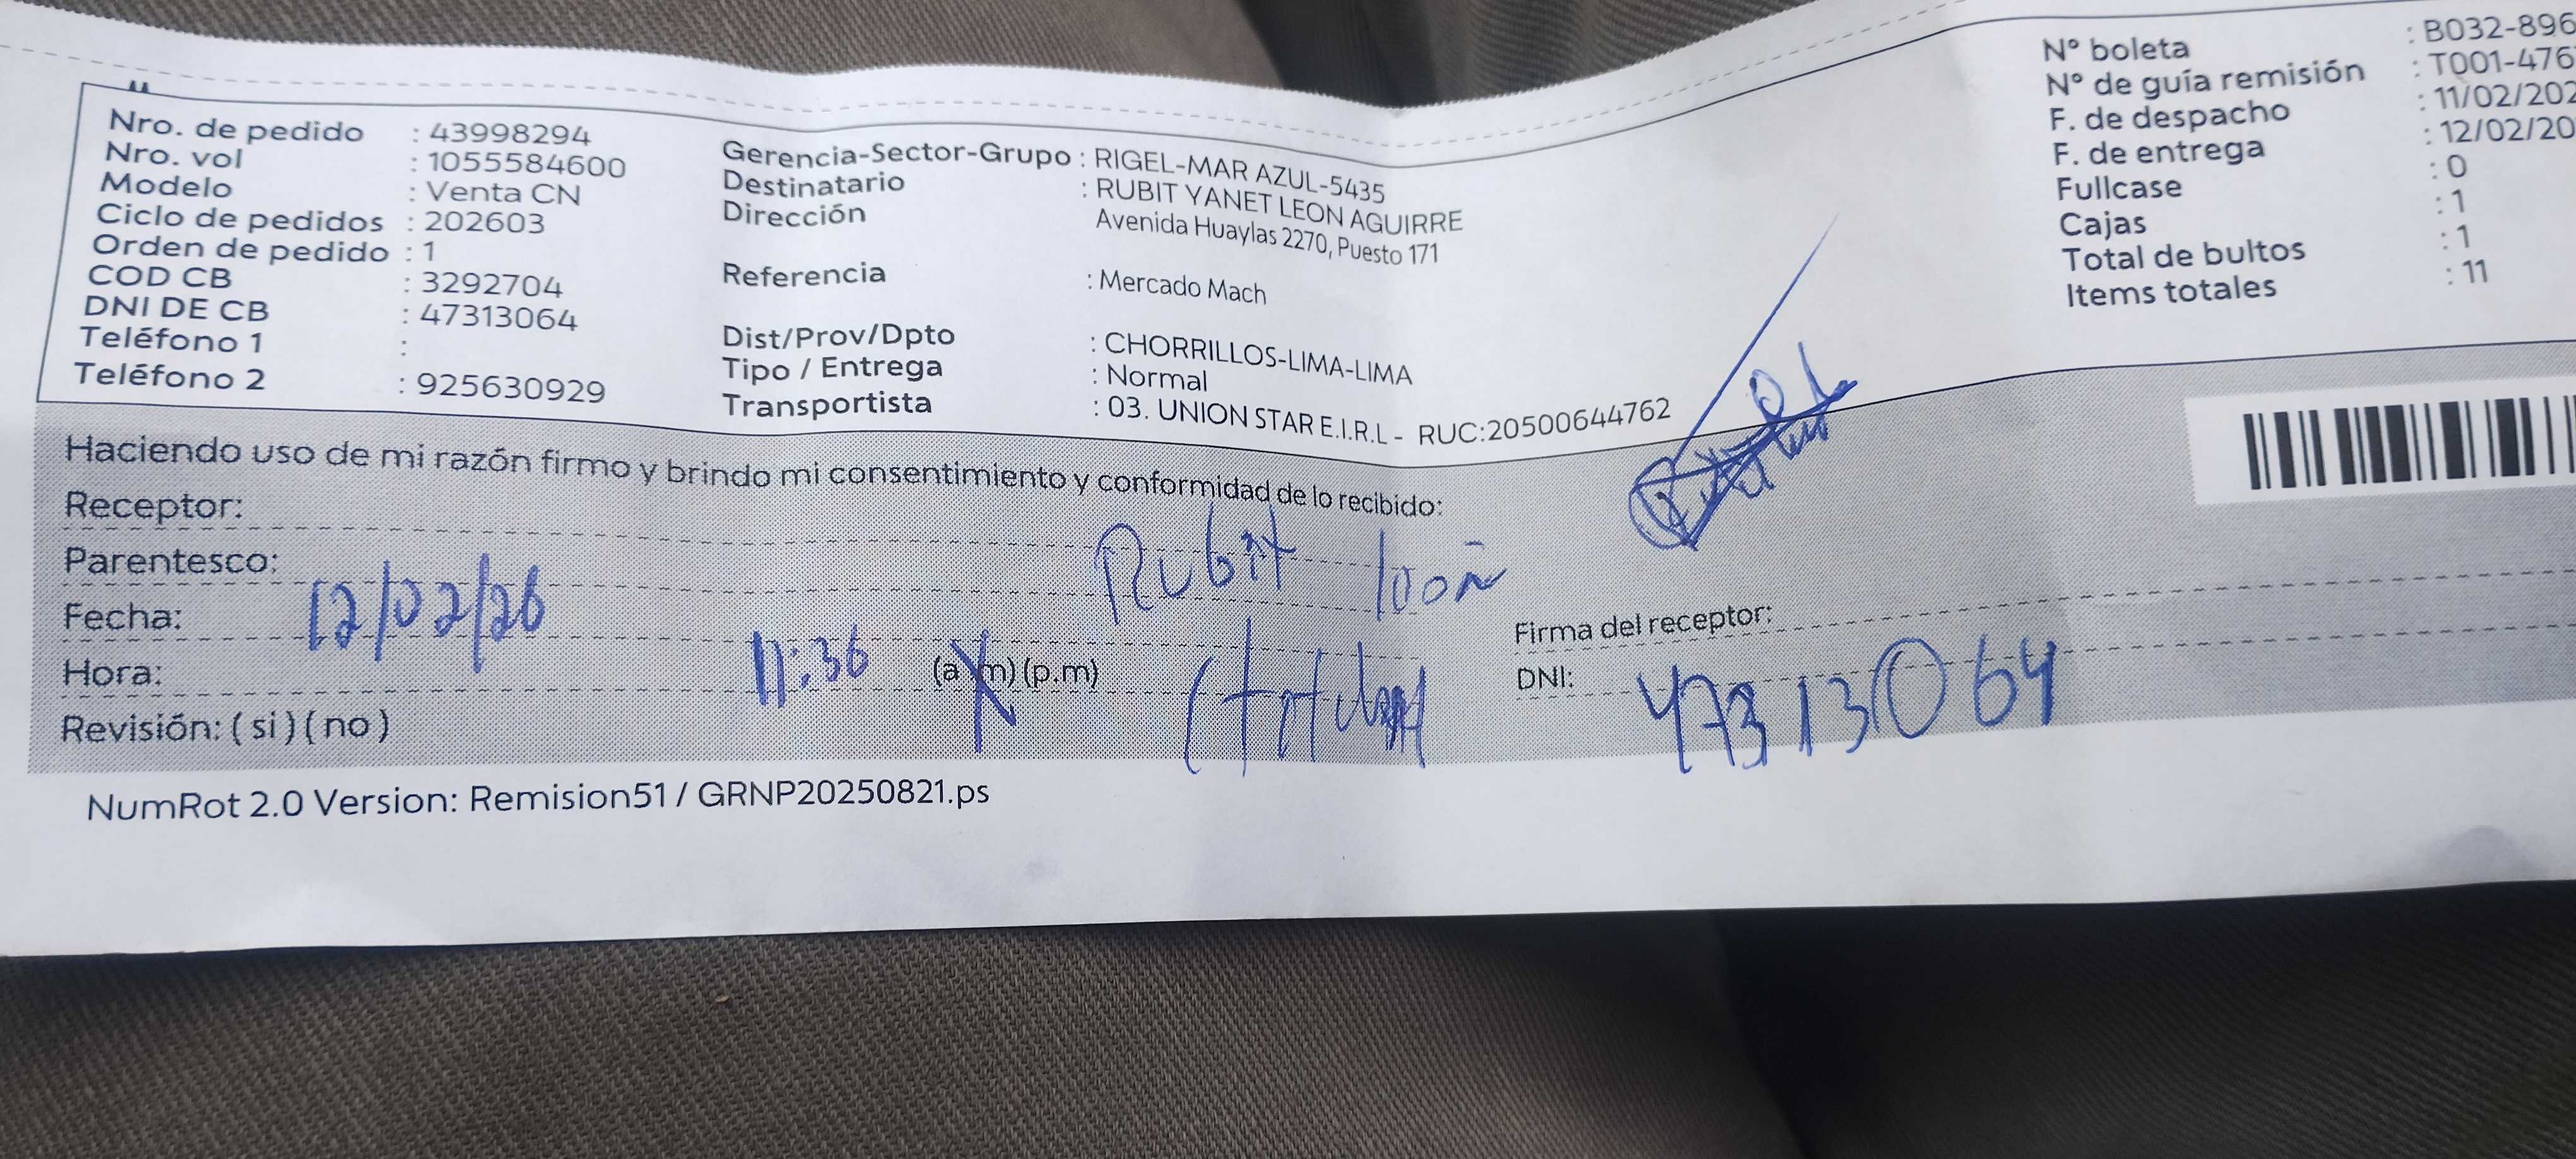 Nro. de pedido : 43998294
Nro. vol : 1055584600
Modelo : Venta CN
Ciclo de pedidos : 202603
Orden de pedido : 1
COD CB : 3292704
DNI DE CB : 47313064
Teléfono 1 :
Teléfono 2 : 925630929
Gerencia-Sector-Grupo : RIGEL-MAR AZUL-5435
Destinatario : RUBIT YANET LEON AGUIRRE
Dirección Avenida Huaylas 2270, Puesto 171
Referencia : Mercado Mach
Dist/Prov/Dpto : CHORRILLOS-LIMA-LIMA
Tipo / Entrega : Normal
Transportista : 03. UNION STAR E.I.R.L - RUC:20500644762
N° boleta : B032-896
N° de guía remisión : T001-476
F. de despacho : 11/02/202
F. de entrega : 12/02/20
Fullcase : 0
Cajas : 1
Total de bultos : 1
Items totales : 11
Haciendo uso de mi razón firmo y brindo mi consentimiento y conformidad de lo recibido:
Receptor: Rubit
Parentesco:
Fecha: 12/02/26
Hora: 11:36 (a.m) (p.m)
Revisión: ( si ) ( no )
Firma del receptor:
DNI: 47313064
NumRot 2.0 Version: Remision51 / GRNP20250821.ps